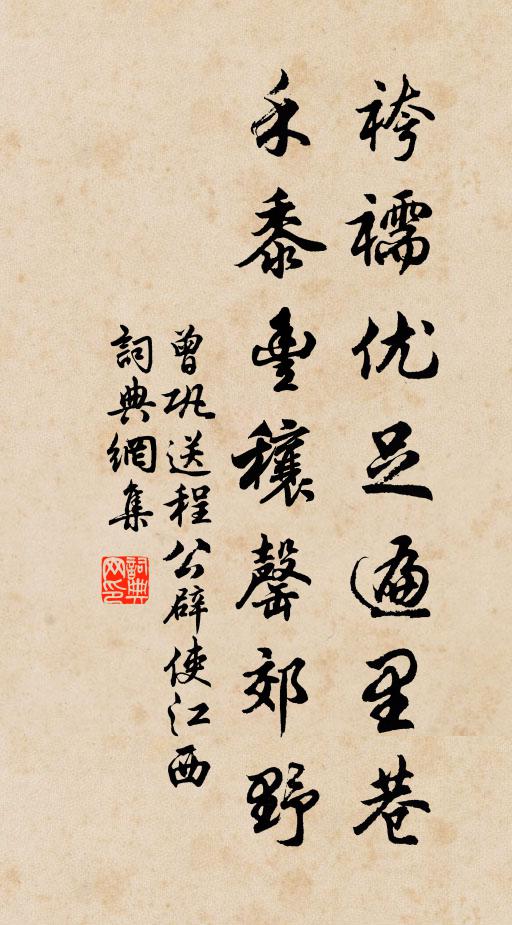 袴襦优足遍里巷
禾黍豊穰罄郊野
曾巩送程公辟使江西
詞典網集
詞典网印